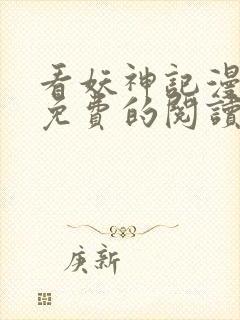 看妖神記漫
免費的閱讀
庚新